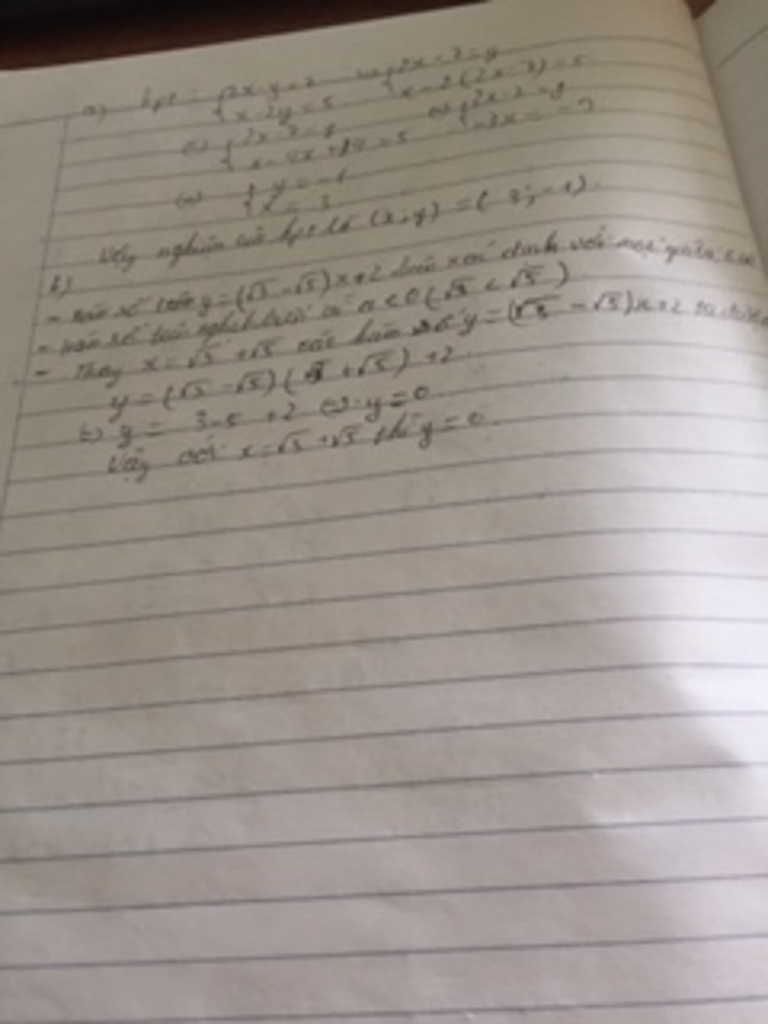 a) hpt: { 2x-y=7 <=> { 2x-7=y
x-2y=5 x-2(2x-7)=5
<=> { 2x-7=y <=> { 2x-7=y
x-4x+14=5 -3x=-9
<=> { y=-1
x=3
Vậy nghiệm của hpt là (x;y) = (3;-1).
b)
- Hàm số trên y=(√3-√5)x+2 luôn xác định với mọi giá trị của
- Hàm số trên nghịch biến vì a<0 (√3<√5)
- Thay x=√3+√5 vào hàm số y=(√3-√5)x+2
y=(√3-√5)(√3+√5)+2
<=> y= 3-5+2 <=> y=0
Vậy với x=√3+√5 thì y=0.